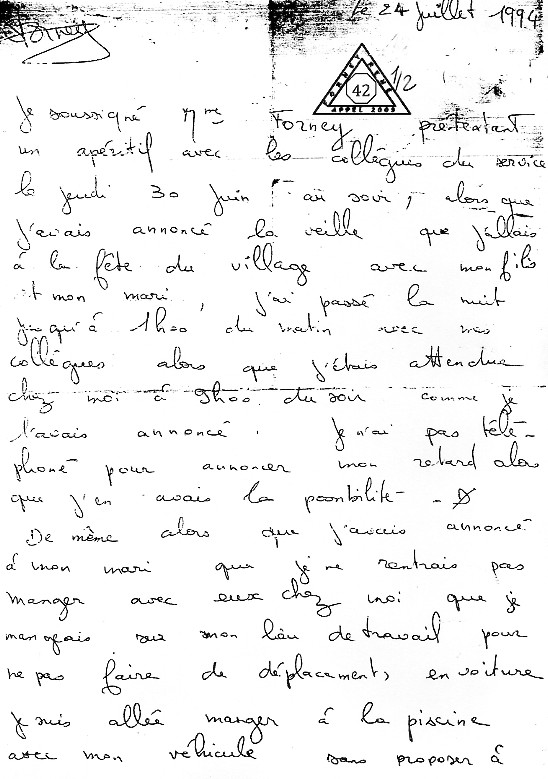 Forney
le 24 juillet 1994
42
1/2
APPEL 2003
Je soussigné Mme Forney prétextant
un apéritif avec les collègues du service
le jeudi 30 juin "au soir", alors que
j'avais annoncé la veille que j'allais
à la fête du village avec mon fils
et mon mari, j'ai passé la nuit
jusqu'à 1h00 du matin avec mes
collègues alors que j'étais attendue
chez moi à 9h00 du soir comme je
l'avais annoncé. Je n'ai pas télé-
phoné pour annoncer mon retard alors
que j'en avais la possibilité -
De même alors que j'avais annoncé
à mon mari que je ne rentrais pas
manger avec eux chez moi que je
mangeais sur mon lieu de travail pour
ne pas faire de déplacements en voiture
je suis allée manger à la piscine
avec mon véhicule sans proposer à